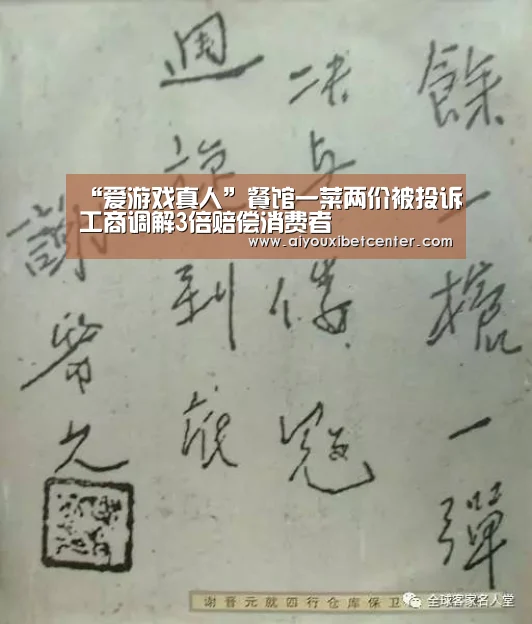 餘一槍一彈
決与倭寇
週旋到底
謝晉元
“爱游戏真人”餐馆一菜两价被投诉
工商调解3倍赔偿消费者
www.aiyouxibetcenter.com
谢晋元就四行仓库保卫
全球客家名人堂